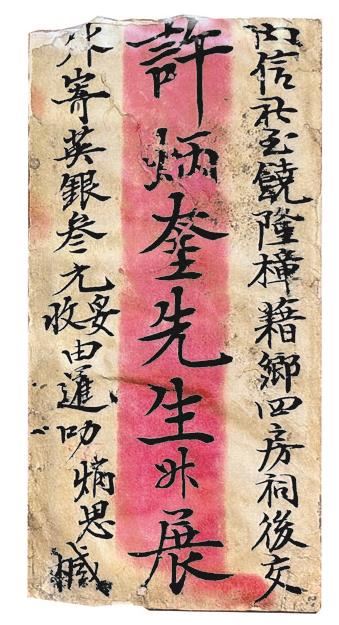 内信至饒隆樟藉鄉四房祠後交
許炳奎先生升展
外寄英銀叁元妥收由暹叻炳思緘